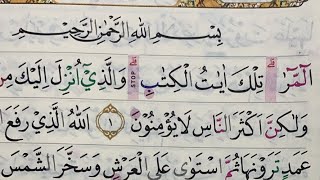 بِسْمِ اللهِ الرَّحْمٰنِ الرَّحِيْمِ
الٓمّٓرٰ ۚ تِلْكَ اٰيٰتُ الْكِتٰبِ ؕ وَالَّذِيْٓ اُنْزِلَ اِلَيْكَ مِنْ
STOP
وَلٰكِنَّ اَكْثَرَ النَّاسِ لَا يُؤْمِنُوْنَ ١ اَللهُ الَّذِيْ رَفَعَ
عَمَدٍ تَرَوْنَهَا ثُمَّ اسْتَوٰى عَلَى الْعَرْشِ وَسَخَّرَ الشَّمْسَ